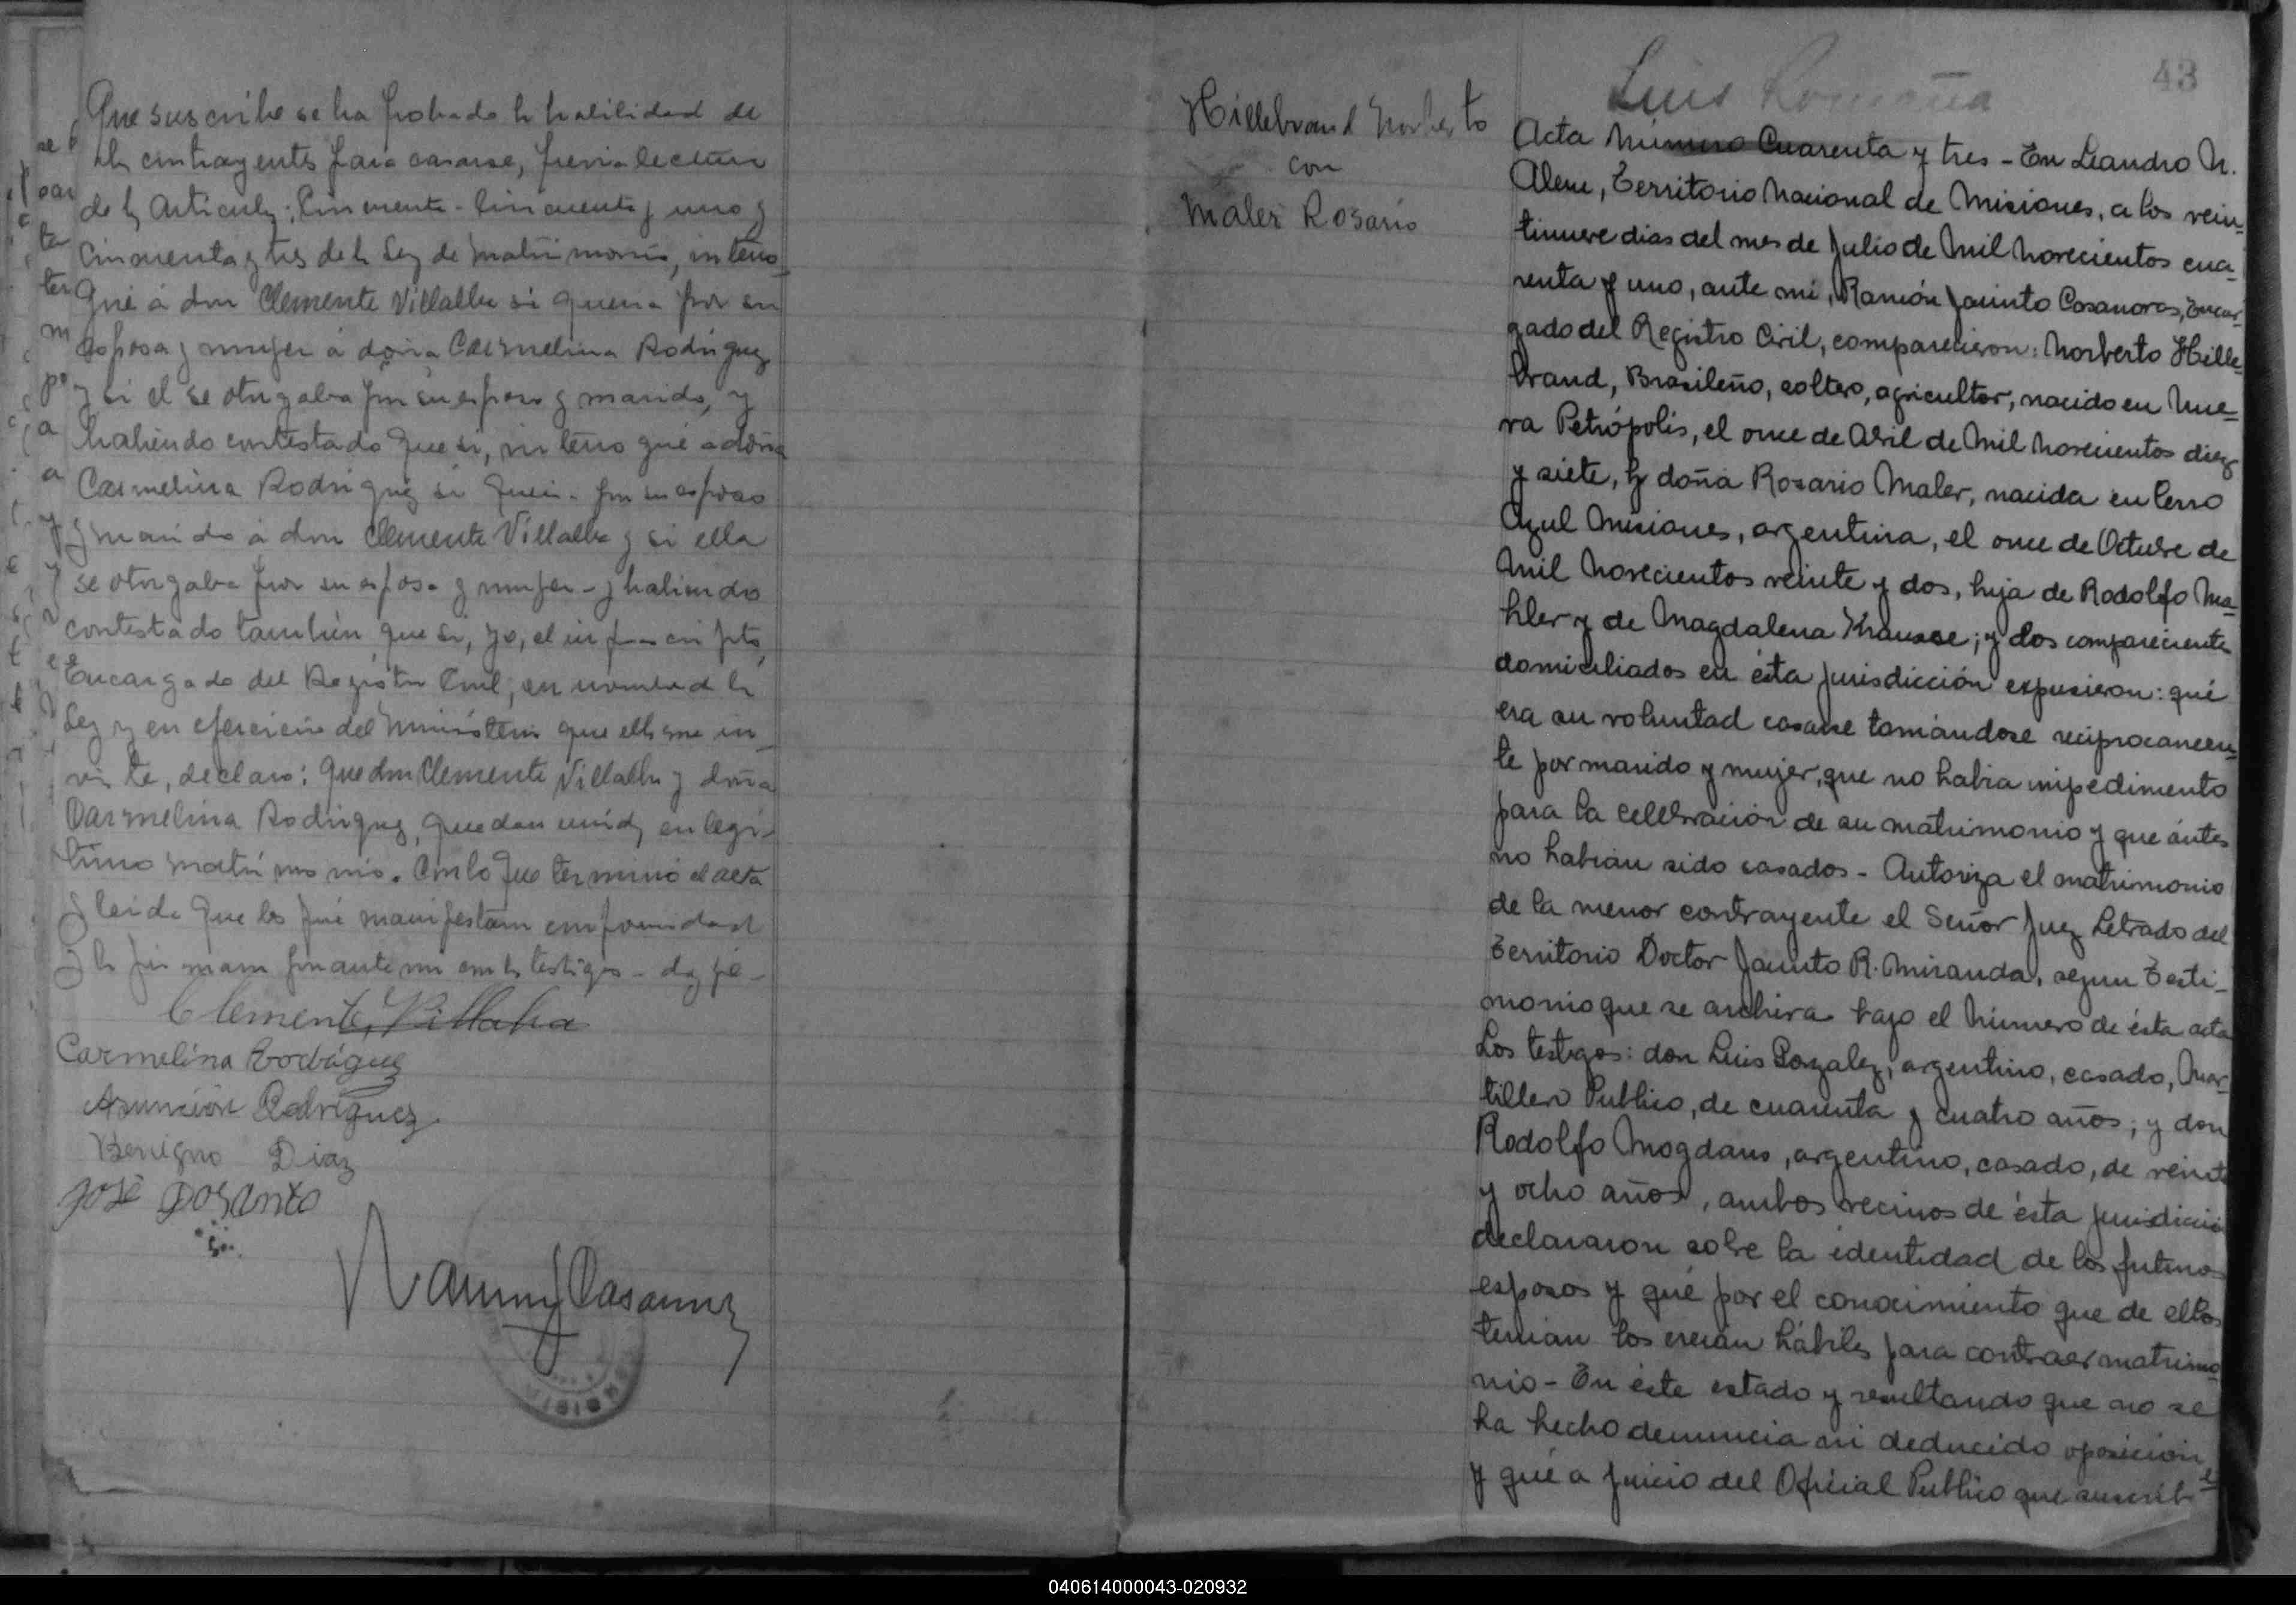 Que suscribe se ha probado la habilidad de
los contrayentes para casarse, previa lectura
de los Articulos: Cincuenta - Cincuenta y uno y
Cincuenta y tres de la Ley de Matrimonio, interro-
gué á don Clemente Villalba si queria por su
esposa y mujer á doña Carmelina Rodriguez
y si el se otorgaba por su esposo y marido, y
habiendo contestado que si, interrogué a doña
Carmelina Rodriguez si queria por su esposo
y marido á don Clemente Villalba y si ella
se otorgaba por su esposa y mujer - y habiendo
contestado también que si, yo, el infrascripto,
Encargado del Registro Civil, en nombre de la
Ley y en ejercicio del Ministerio que ella me in-
viste, declaro: Que don Clemente Villalba y doña
Carmelina Rodriguez, quedan unidos en legi-
timo matrimonio. Con lo que terminó el acta
y leida que les fué manifestaron conformidad
y la firmaron por ante mi con los testigos - doy fé -
Clemente Villalba
Carmelina Rodríguez
Asunción Rodríguez
Benigno Diaz
José Dosanto
43
Luis Romaña
Hillebrand Norberto
con
Maler Rosario
Acta Número Cuarenta y tres - En Leandro N.
Alem, Territorio Nacional de Misiones, a los vein-
tinueve dias del mes de Julio de Mil Novecientos cua-
renta y uno, ante mi, Ramón Jacinto Casanovas, Encar-
gado del Registro Civil, comparecieron: Norberto Hille-
brand, Brasileño, soltero, agricultor, nacido en Nue-
va Petrópolis, el once de Abril de Mil Novecientos diez
y siete, y doña Rosario Maler, nacida en Cerro
Azul Misiones, argentina, el once de Octubre de
Mil Novecientos veinte y dos, hija de Rodolfo Ma-
hler y de Magdalena Krausse; y los comparecientes
domiciliados en ésta jurisdicción expusieron: qué
era su voluntad casarse tomándose reciprocamen-
te por marido y mujer, que no habia impedimento
para la celebración de su matrimonio y que ántes
no habian sido casados - Autoriza el matrimonio
de la menor contrayente el Señor Juez Letrado del
Territorio Doctor Jacinto R. Miranda, segun Testi-
monio que se archiva bajo el Número de ésta acta
Los testigos: don Luis Gonzalez, argentino, casado, Mar-
tillero Publico, de cuarenta y cuatro años; y don
Rodolfo Mogdans, argentino, casado, de veinte
y ocho años, ambos vecinos de ésta jurisdicción
declararon sobre la identidad de los futuros
esposos y qué por el conocimiento que de ellos
tenian los creian hábiles para contraer matrimo-
nio - En éste estado y resultando que no se
ha hecho denuncia ni deducido oposición,
y qué a juicio del Oficial Publico que suscribe
040614000043-020932